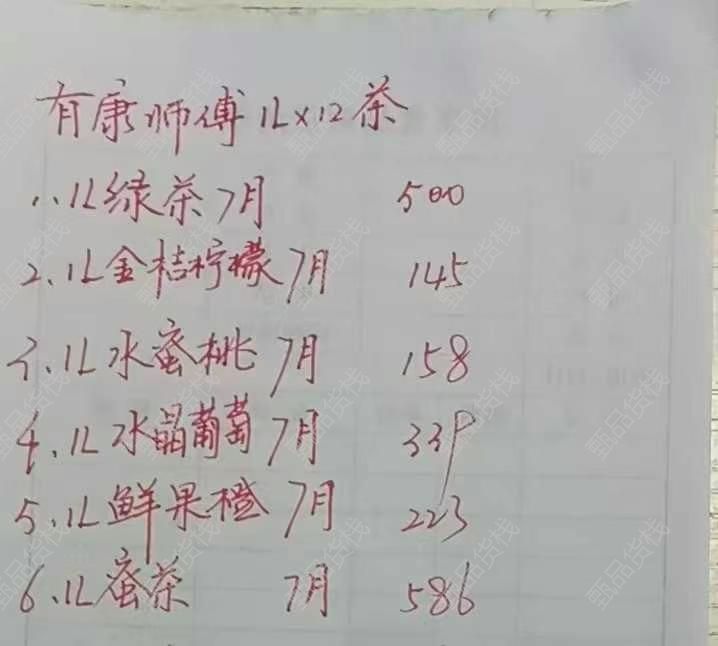 有康师傅1L×12茶
1、1L绿茶7月 500
2、1L金桔柠檬7月 145
3、1L水蜜桃7月 158
4、1L水晶葡萄7月 339
5、1L鲜果橙7月 223
6、1L蜜茶 7月 586
甄品货栈